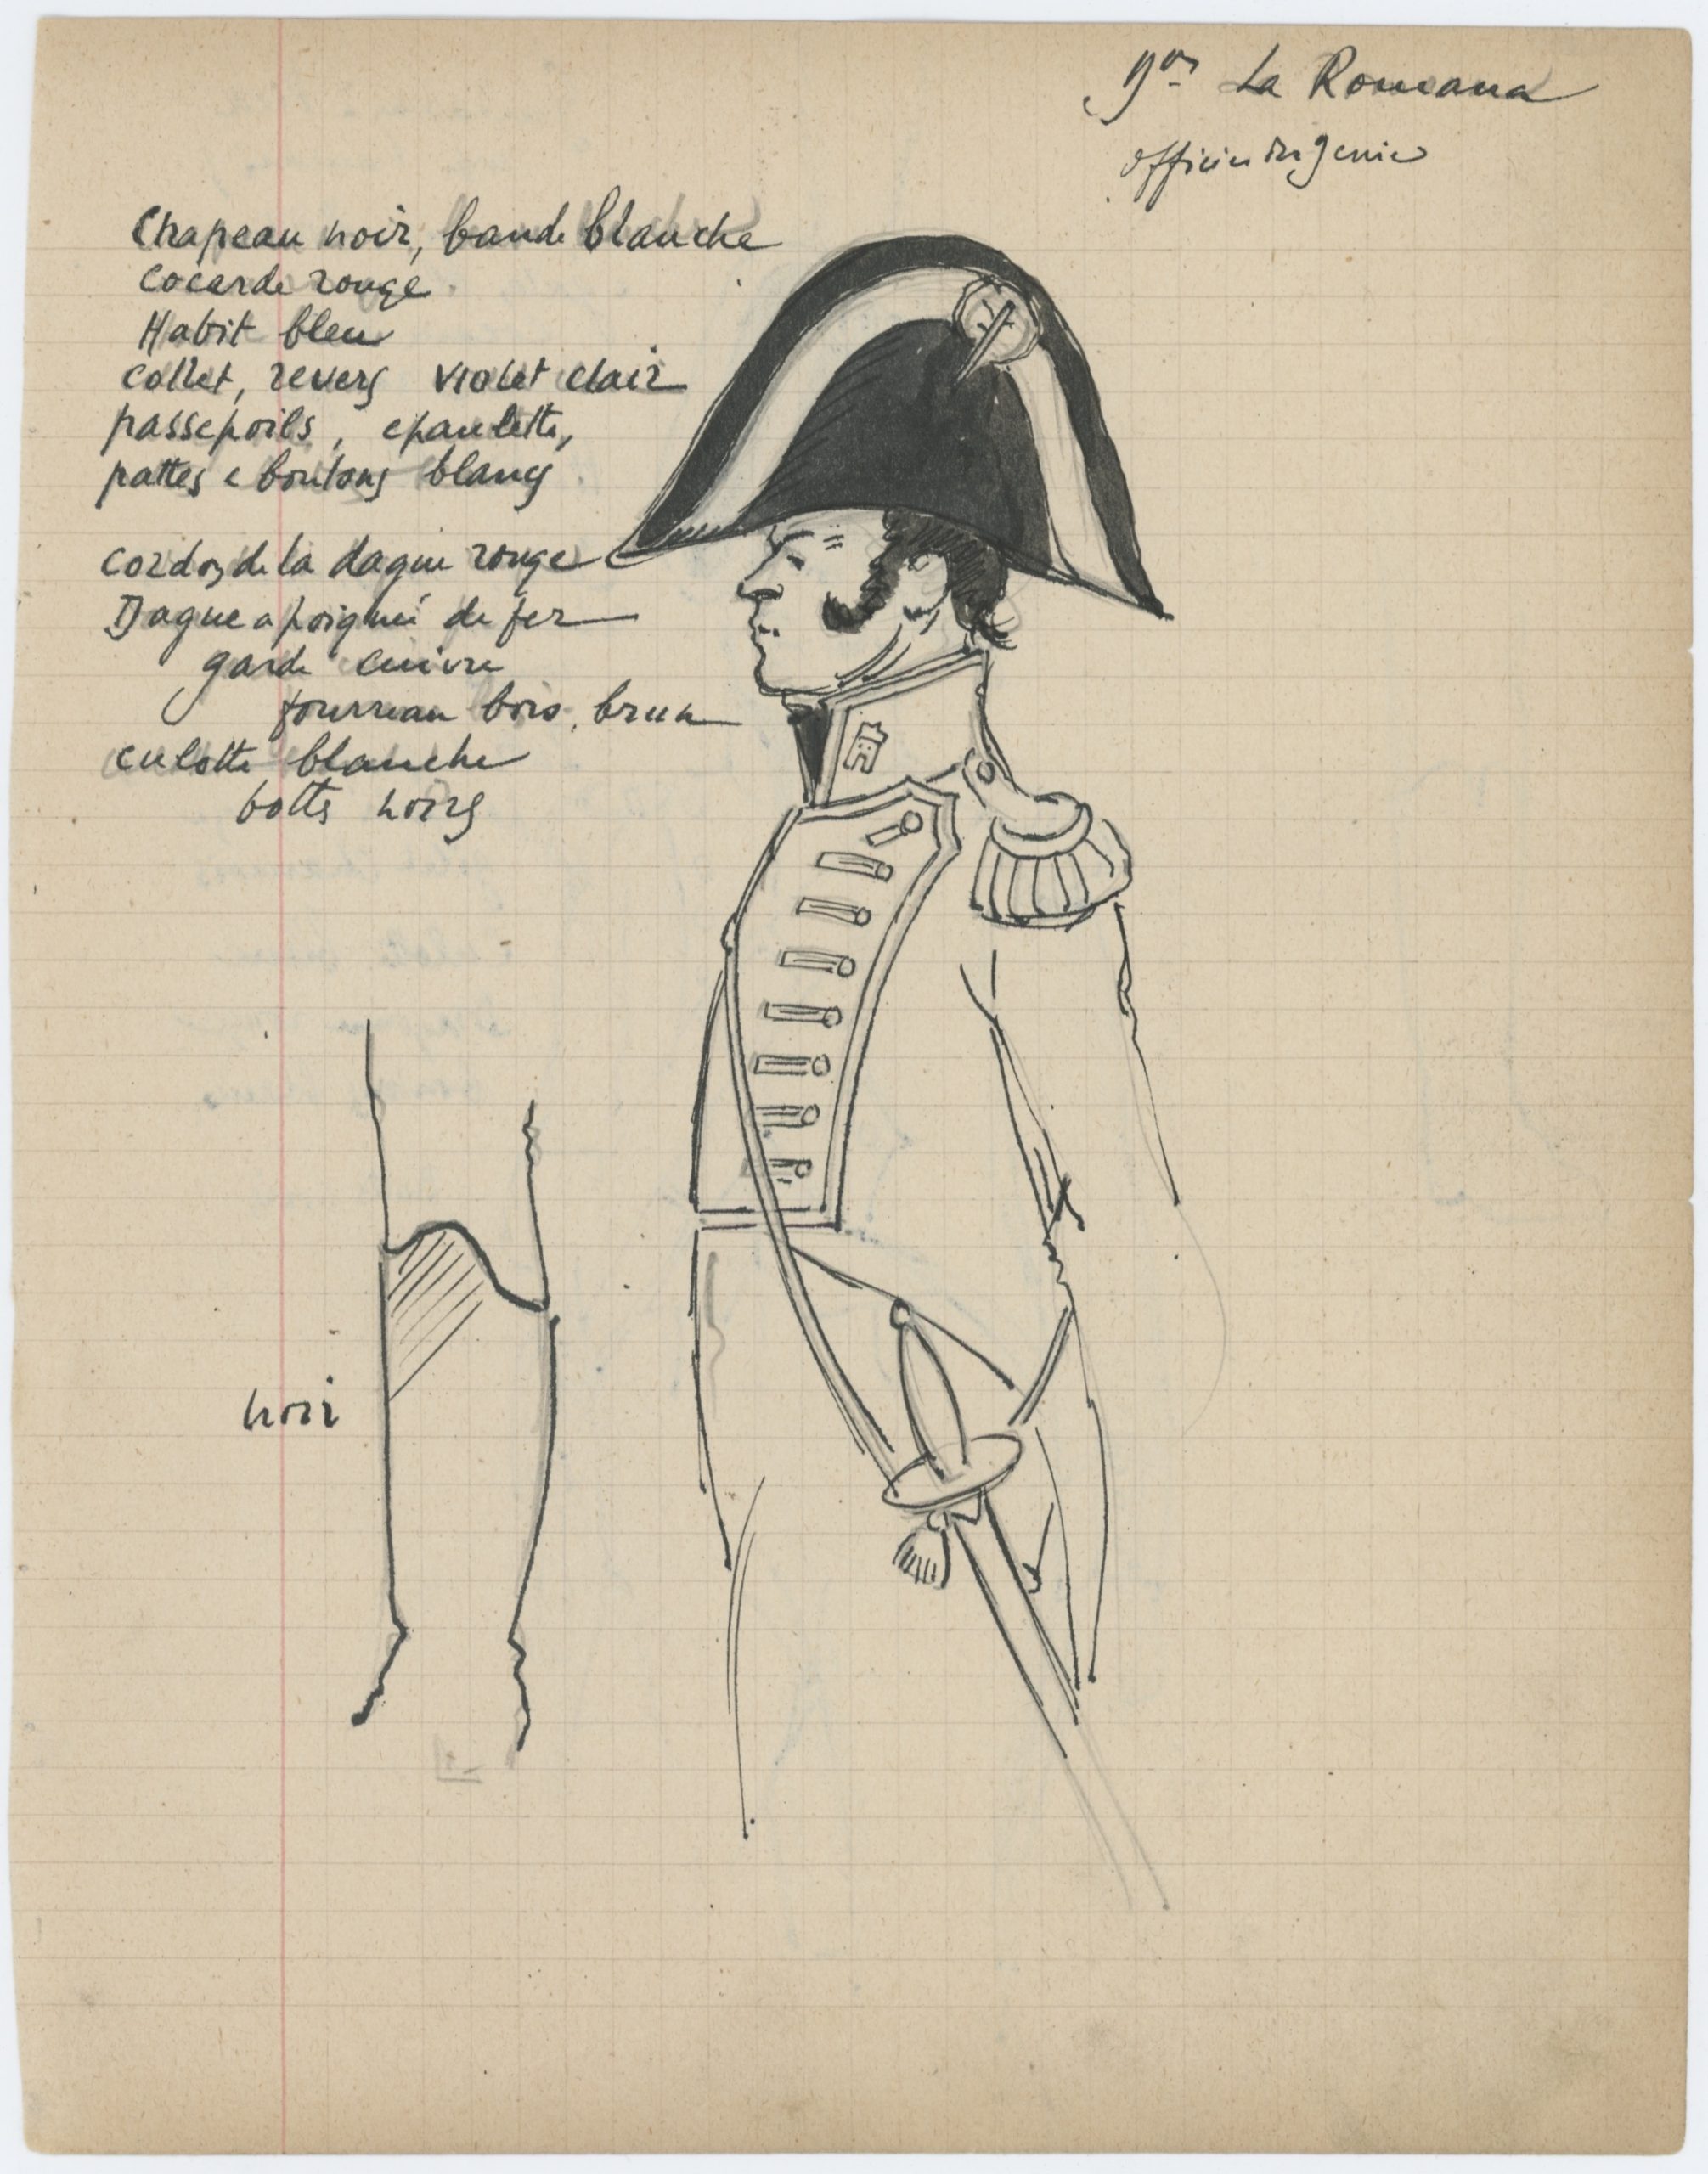 La Romana
officier du genie
Chapeau noir, bande blanche
cocarde rouge
Habit bleu
collet, revers violet clair
passepoils, epaulette,
pattes e boutons blancs
cordon de la dague rouge
Dague a poignée de fer
garde cuivre
fourreau bois, brun
culotte blanche
bottes noires
noir